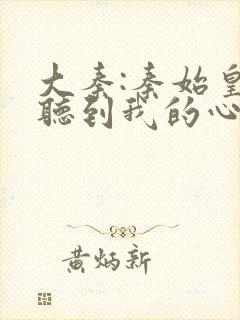 大秦:秦始皇
聽到我的心
黄炳新